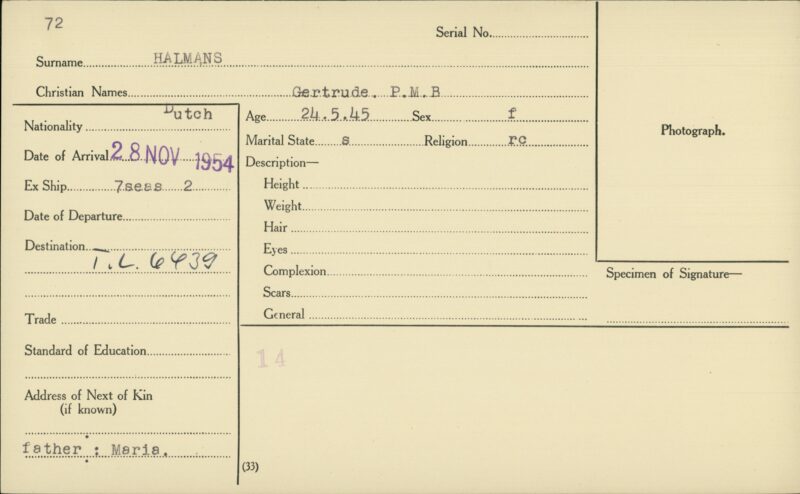 72
Serial No.
Surname HALMANS
Christian Names Gertrude. P.M.B
Nationality Dutch
Date of Arrival 28 NOV 1954
Ex Ship 7seas 2
Date of Departure
Destination T.L. 6439
Trade
Standard of Education
Address of Next of Kin
(if known)
father : Maria.
Age 24.5.45 Sex f
Marital State s Religion rc
Description—
Height
Weight
Hair
Eyes
Complexion
Scars
General
14
(33)
Photograph.
Specimen of Signature—